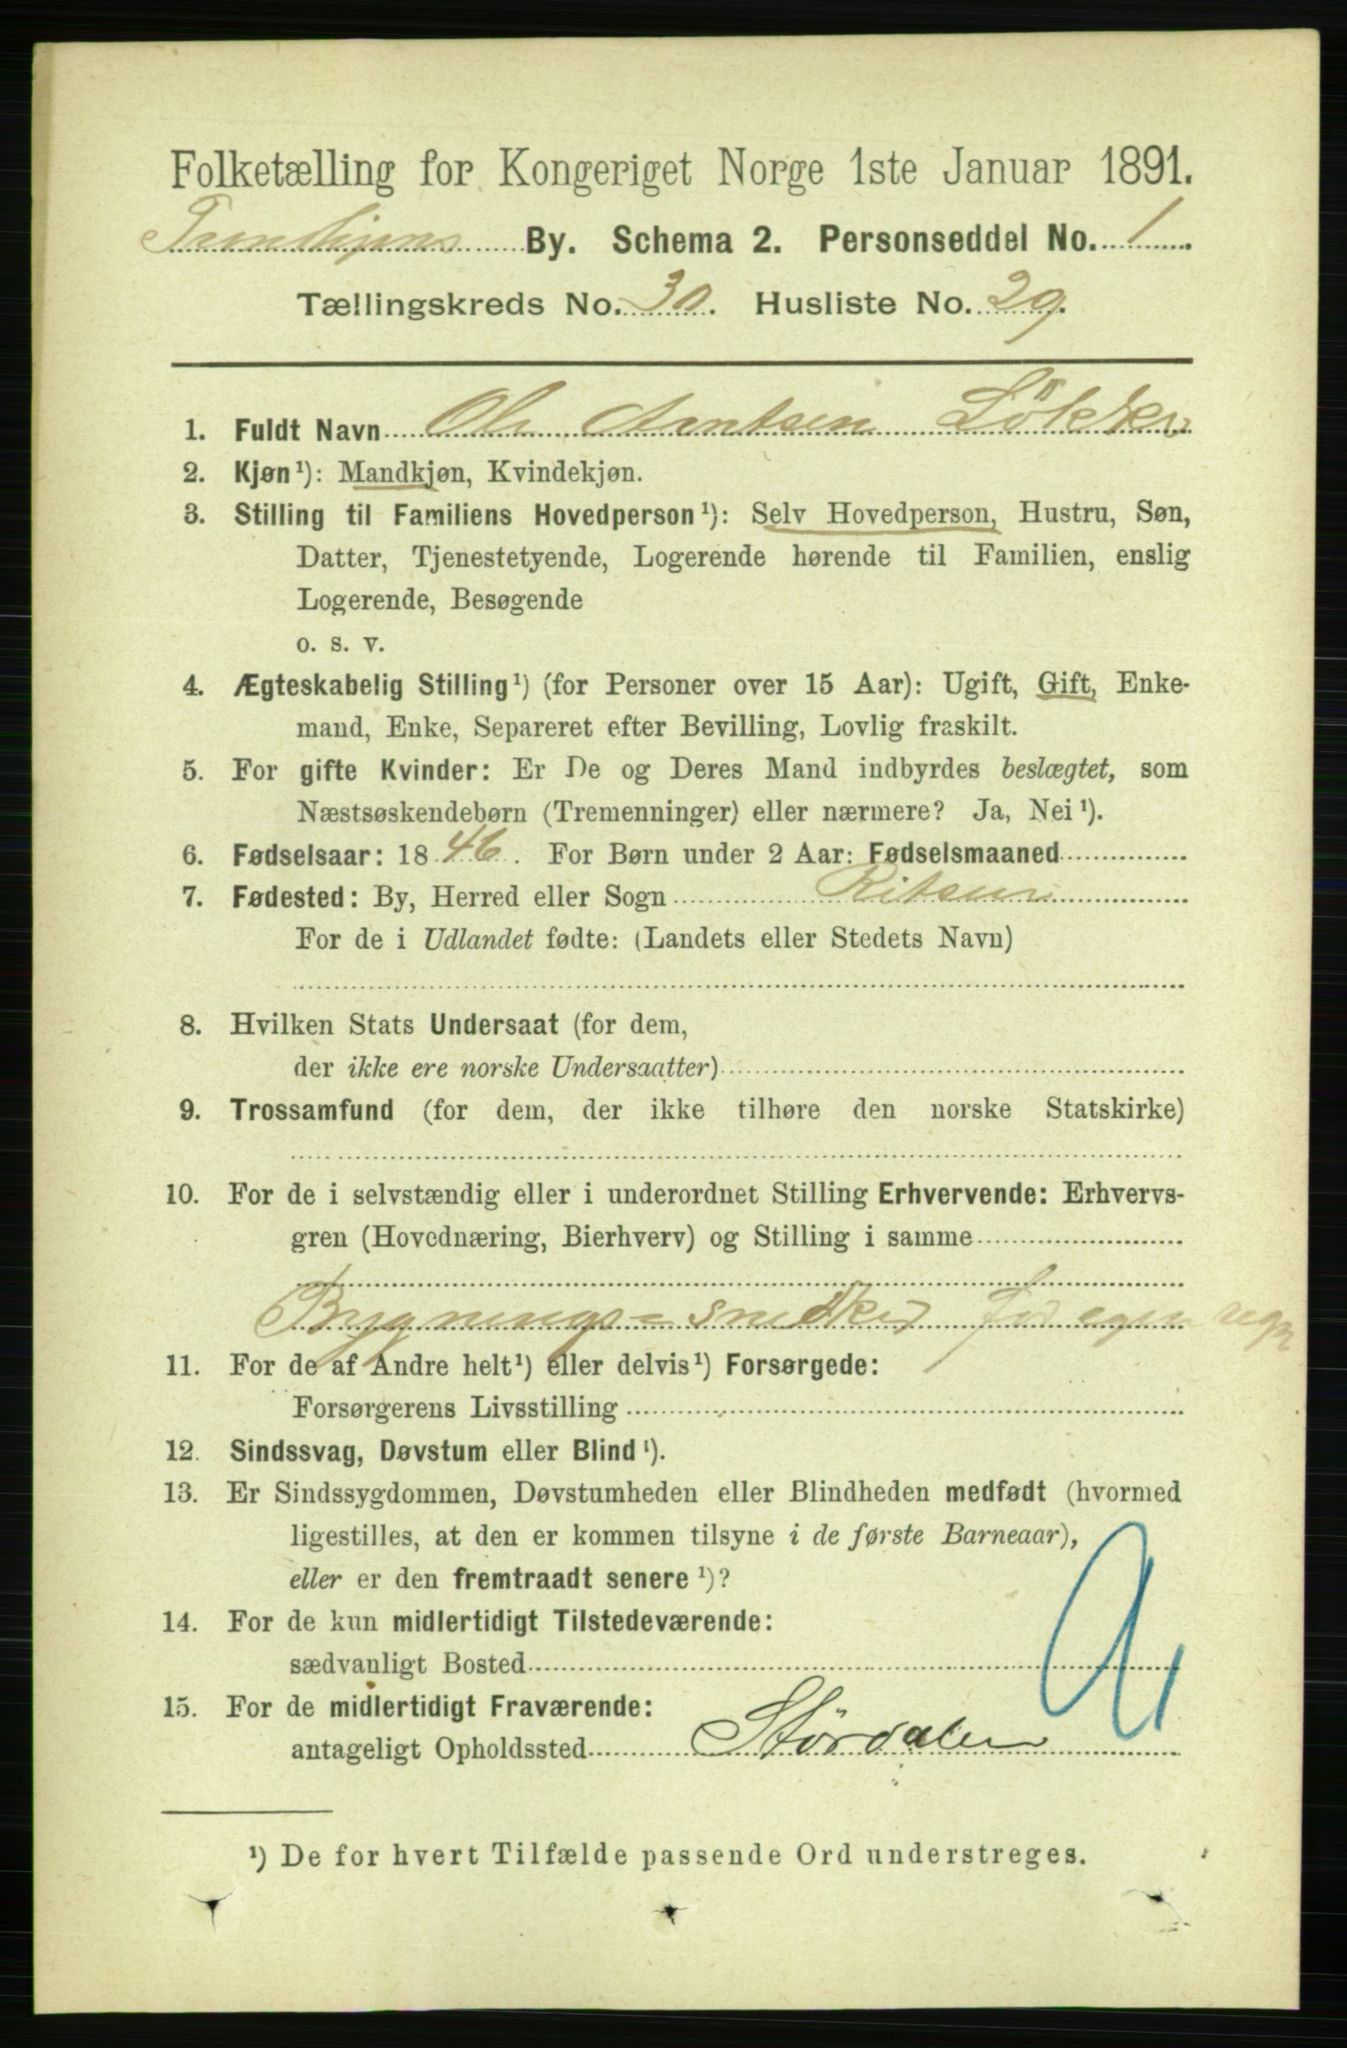 Folketælling for Kongeriget Norge 1ste Januar 1891.
Trondhjems By. Schema 2. Personseddel No. 1.
Tællingskreds No. 30. Husliste No. 29.
1. Fuldt Navn Ole Arntsen Lökken
2. Kjøn¹): Mandkjøn, Kvindekjøn.
3. Stilling til Familiens Hovedperson¹): Selv Hovedperson, Hustru, Søn,
Datter, Tjenestetyende, Logerende hørende til Familien, enslig
Logerende, Besøgende
o. s. v.
4. Ægteskabelig Stilling¹) (for Personer over 15 Aar): Ugift, Gift, Enke-
mand, Enke, Separeret efter Bevilling, Lovlig fraskilt.
5. For gifte Kvinder: Er De og Deres Mand indbyrdes beslægtet, som
Næstsøskendebørn (Tremenninger) eller nærmere? Ja, Nei¹).
6. Fødselsaar: 1846. For Børn under 2 Aar: Fødselsmaaned
7. Fødested: By, Herred eller Sogn
For de i Udlandet fødte: (Landets eller Stedets Navn)
8. Hvilken Stats Undersaat (for dem,
der ikke ere norske Undersaatter)
9. Trossamfund (for dem, der ikke tilhøre den norske Statskirke)
10. For de i selvstændig eller i underordnet Stilling Erhvervende: Erhvervs-
gren (Hovednæring, Bierhverv) og Stilling i samme
Bygnings=snedker for egen regn
11. For de af Andre helt¹) eller delvis¹) Forsørgede:
Forsørgerens Livsstilling
12. Sindssvag, Døvstum eller Blind¹).
13. Er Sindssygdommen, Døvstumheden eller Blindheden medfødt (hvormed
ligestilles, at den er kommen tilsyne i de første Barneaar),
eller er den fremtraadt senere¹)?
14. For de kun midlertidigt Tilstedeværende:
sædvanligt Bosted
15. For de midlertidigt Fraværende:
antageligt Opholdssted Stördalen
¹) De for hvert Tilfælde passende Ord understreges.